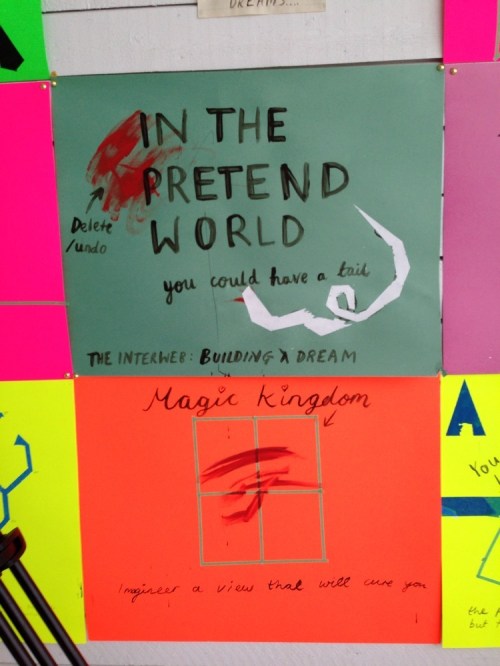 DREAMS....
IN THE
PRETEND
WORLD
Delete
/undo
you could have a tail
THE INTERWEB: BUILDING A DREAM
Magic Kingdom
Imagineer a view that will cure you
A
You
the
but